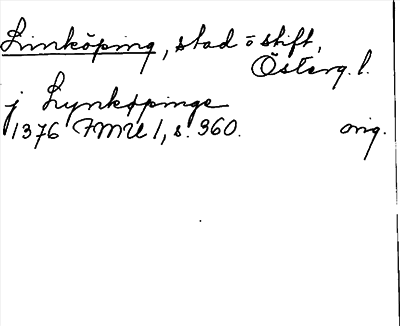 Linköping, stad o stift,
Österg. l.
j Lynkøpinge
1376 FMU 1, s. 360. orig.